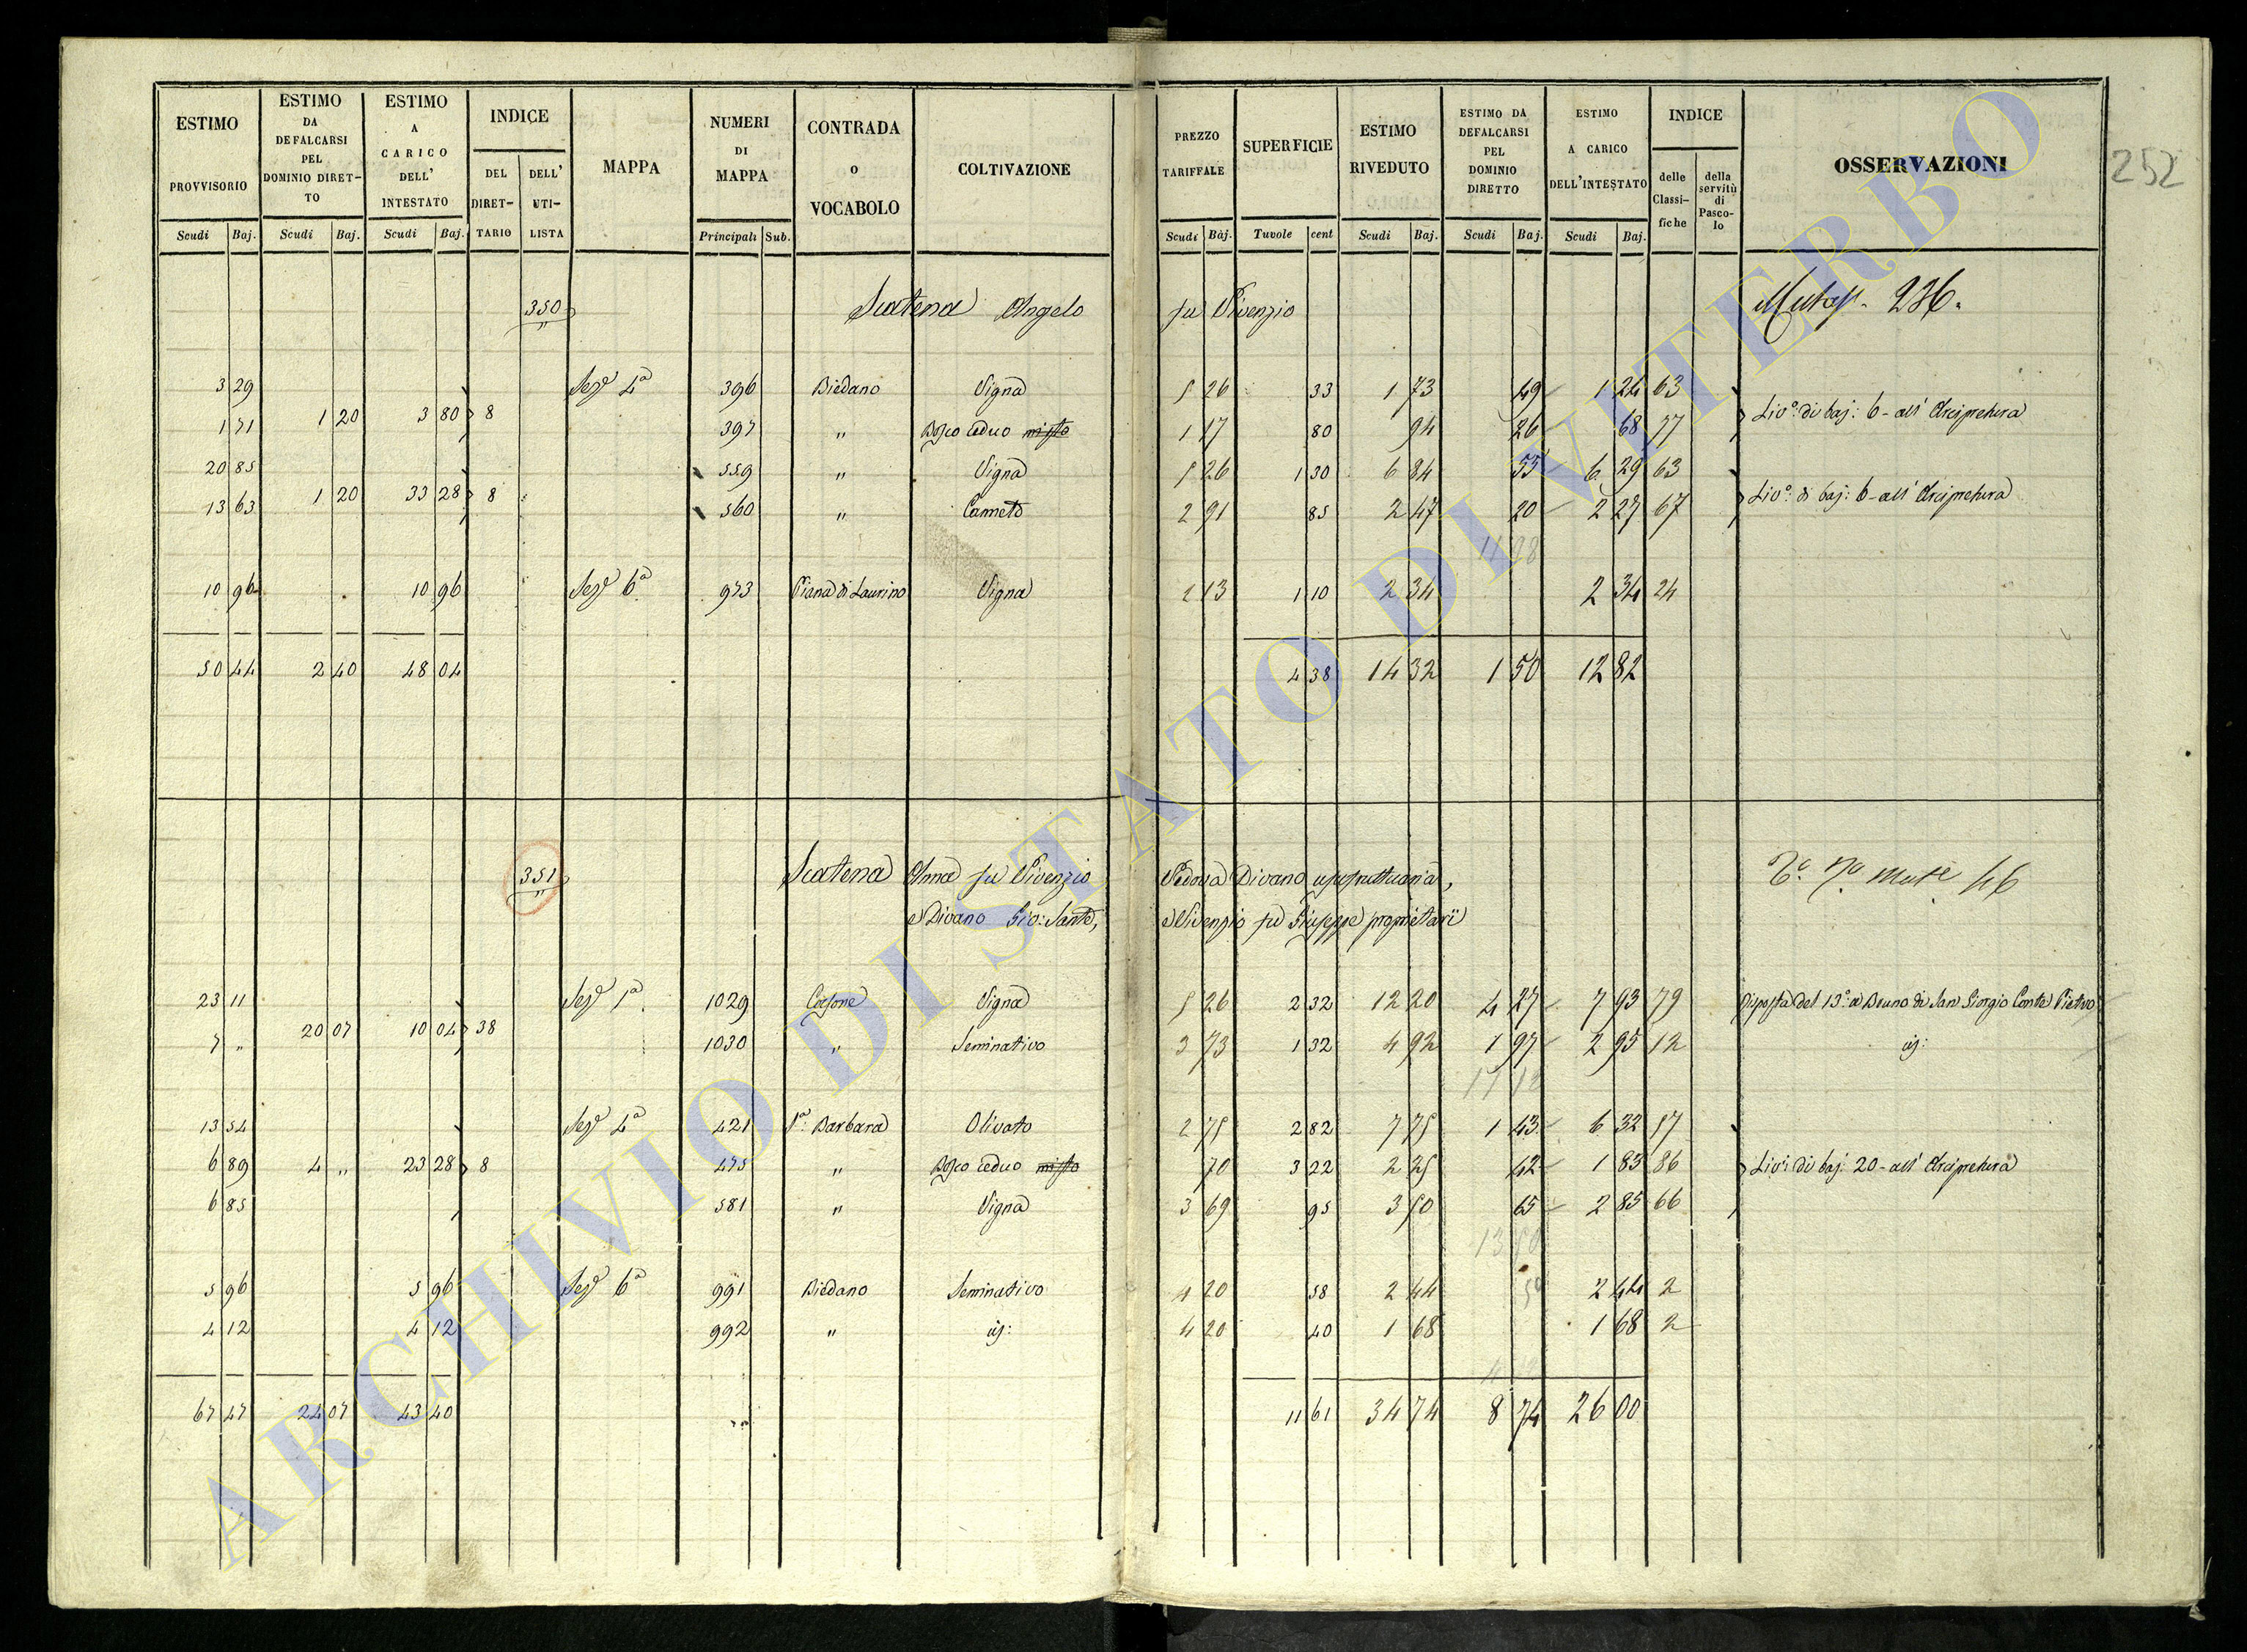 ESTIMO PROVVISORIO
ESTIMO DA DEFALCARSI PEL DOMINIO DIRET-TO
ESTIMO A CARICO DELL' INTESTATO
INDICE
DEL DIRET-TARIO
DELL' UTI-LISTA
MAPPA
NUMERI DI MAPPA
CONTRADA o VOCABOLO
COLTIVAZIONE
PREZZO TARIFFALE
SUPERFICIE
ESTIMO RIVEDUTO
ESTIMO DA DEFALCARSI PEL DOMINIO DIRETTO
ESTIMO A CARICO DELL'INTESTATO
INDICE
delle Classi-fiche
della servitù di Pasco-lo
OSSERVAZIONI
252
Scudi Baj. Scudi Baj. Scudi Baj. Principali Sub. Scudi Baj. Tavole cent Scudi Baj. Scudi Baj. Scudi Baj.
350 Scatena Angelo fu Vivenzio 236.
3 29 Sez.e 4a 396 Biedano Vigna 5 26 33 1 73 49 1 24 63
1 20 3 80 8 Liv.o di baj: 6 - all' Arcipretura
1 71 397 " Bosco ceduo misto 1 17 80 94 26 68 77
20 85 559 " Vigna 5 26 1 30 6 84 55 6 29 63
1 20 33 28 8 Liv.o di baj: 6 - all' Arcipretura
13 63 560 " Canneto 2 91 85 2 47 20 2 27 67
11 98
10 96 10 96 Sez.e 6a 973 Piana di Laurino Vigna 2 13 1 10 2 34 2 34 24
50 44 2 40 48 04 4 38 14 32 1 50 12 82
351 Scatena Anna fu Vivenzio Vedova Divano usufruttuaria, 46
e Divano Gio: Santo, e Vivenzio fu Giuseppe proprietarj
23 11 Sez.e 1a 1029 Vigna 5 26 2 32 12 20 4 27 7 93 79 Risposta del 13.o a Bruno di San Giorgio Conte Pietro
20 07 10 04 38
7 " 1030 " Seminativo 3 73 1 32 4 92 1 97 2 95 12 id:
17 12
13 54 Sez.e 4a 421 S.a Barbara Olivato 2 75 2 82 7 75 1 43 6 32 57
6 89 4 " 23 28 8 475 " Bosco ceduo misto 70 3 22 2 25 42 1 83 86 Liv.o di baj: 20 - all' Arcipretura
6 85 581 " Vigna 3 69 95 3 50 65 2 85 66
13 50
5 96 5 96 Sez.e 6a 991 Biedano Seminativo 4 20 58 2 44 2 44 2
4 12 4 12 992 " id: 4 20 40 1 68 1 68 2
67 47 24 07 43 40 11 61 34 74 8 74 26 00
ARCHIVIO DI STATO DI VITERBO